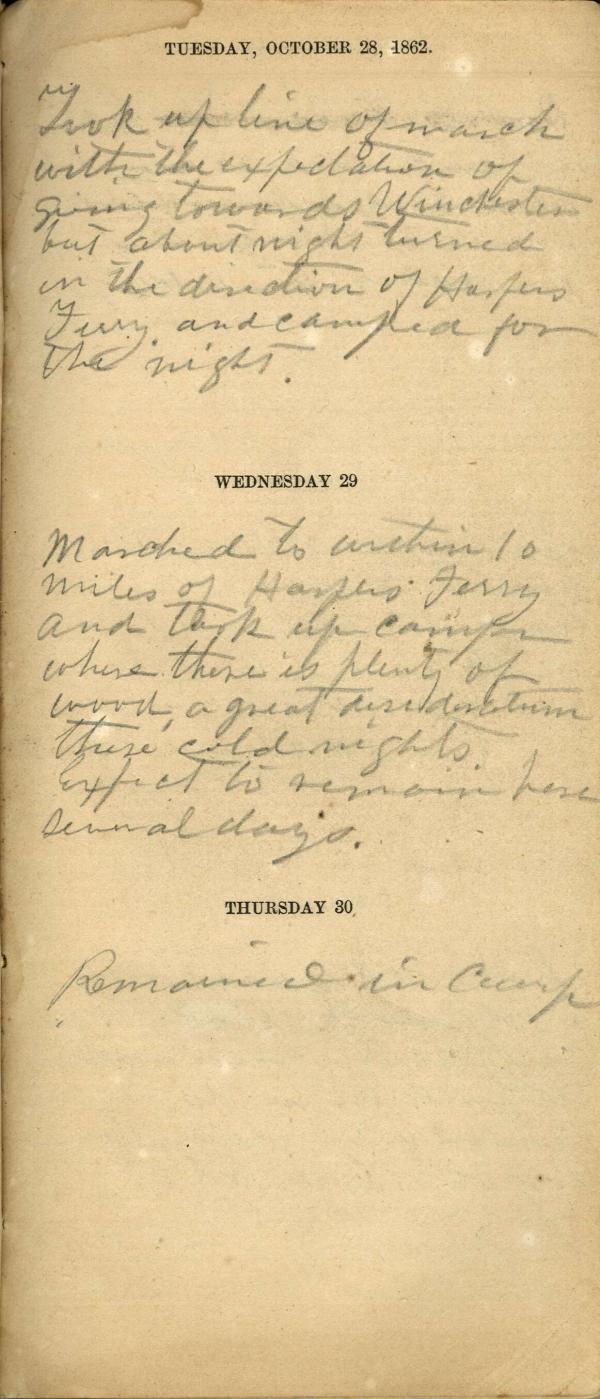 TUESDAY, OCTOBER 28, 1862.
Took up line of march
with the expectation of
going towards Winchester
but about night turned
in the direction of Harpers
Ferry and camped for
the night.
WEDNESDAY 29
Marched to within 10
miles of Harpers Ferry
and took up camp
where there is plenty of
wood, a great desideratum
these cold nights.
Expect to remain here
several days.
THURSDAY 30
Remained in Camp